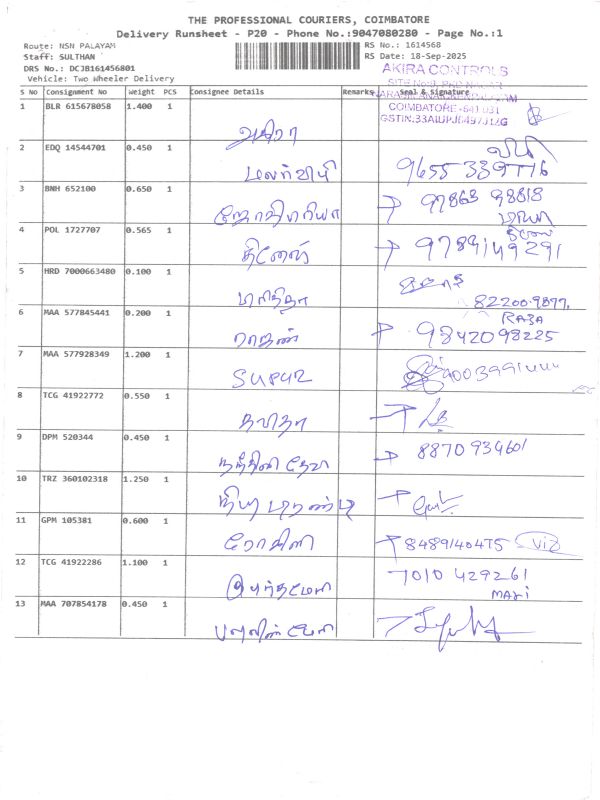 THE PROFESSIONAL COURIERS, COIMBATORE
Delivery Runsheet - P20 - Phone No.:9047080280 - Page No.:1
Route: NSN PALAYAM
RS No.: 1614568
Staff: SULTHAN
RS Date: 18-Sep-2025
DRS No.: DCJB161456801
Vehicle: Two Wheeler Delivery
AKIRA CONTROLS
S No Consignment No Weight PCS Consignee Details Remarks Seal & Signature
COIMBATORE-641 031
1 BLR 615678058 1.400 1
2 EDQ 14544701 0.450 1 மலர்விழி 9655 339776
3 BNH 652100 0.650 1 97863 98818
4 POL 1727707 0.565 1 தினேஷ் 9789149291
5 HRD 7000663480 0.100 1 82200-9877
6 MAA 577845441 0.200 1 ராஜன் RAJA
9842098225
7 MAA 577928349 1.200 1 SUPUR 9003991444
8 TCG 41922772 0.550 1 கவிதா
9 DPM 520344 0.450 1 நந்தினி தேவி 8870 934601
10 TRZ 360102318 1.250 1
11 GPM 105381 0.600 1 ரோகிணி 8489140475
12 TCG 41922286 1.100 1 7010 429261
MARI
13 MAA 707854178 0.450 1